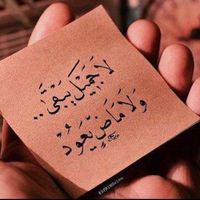 لَا جَمِيْلٌ يَبْقَىٰ،
وَلَا مَاضٍ يَعُوْد